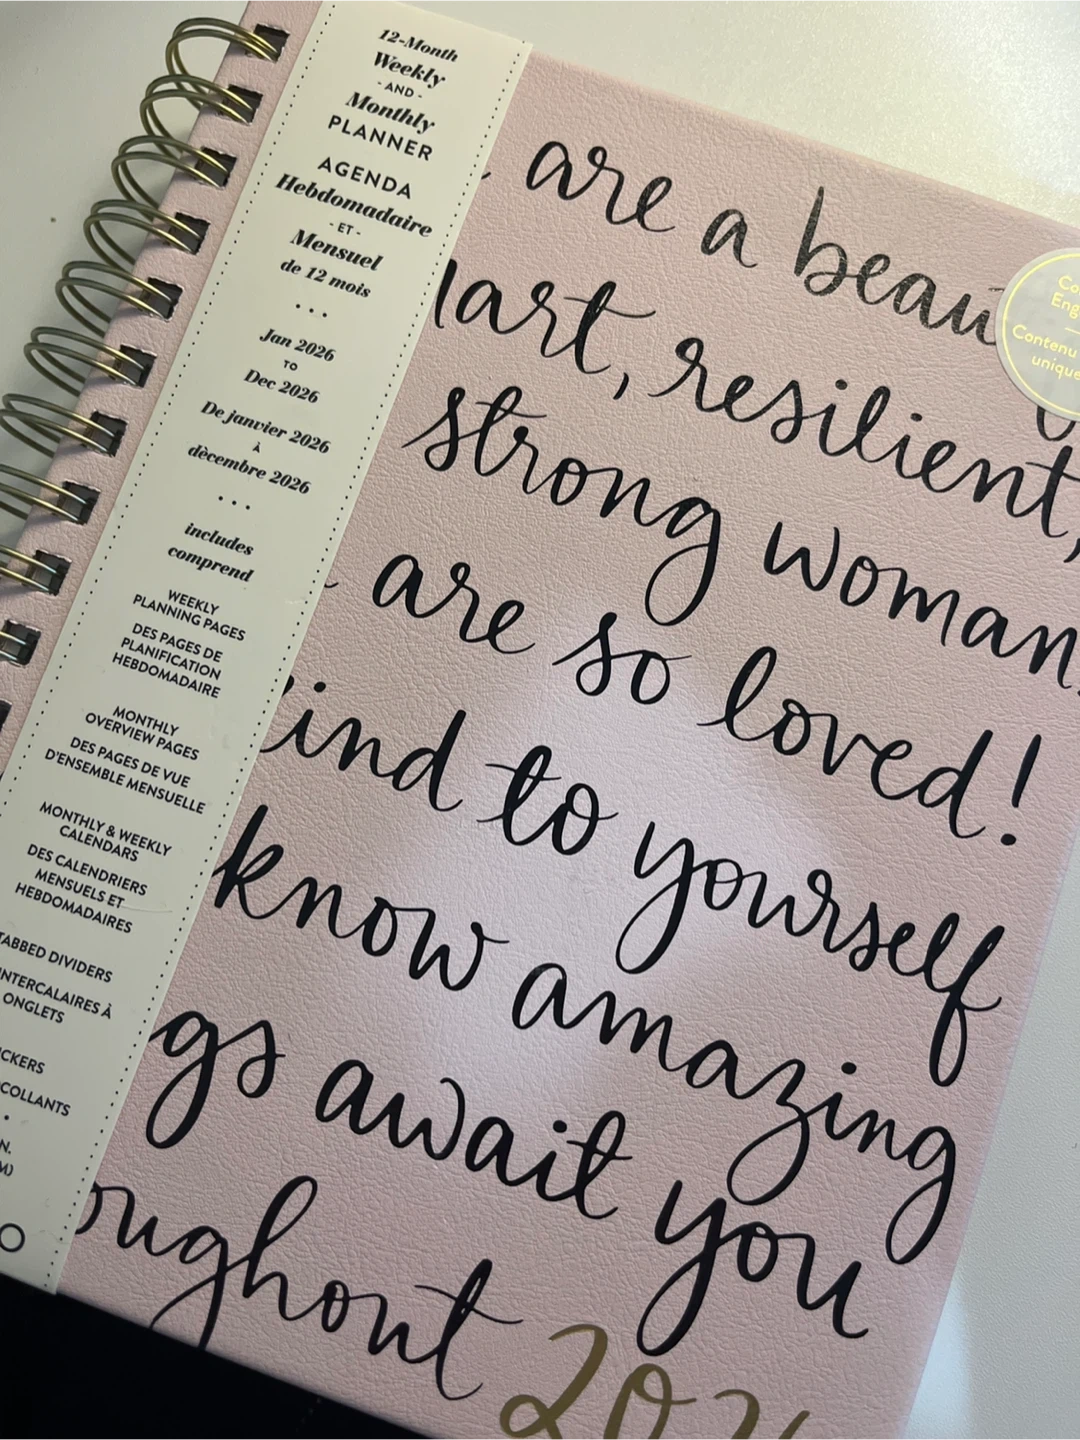 12-Month
Weekly
- AND -
Monthly
PLANNER
AGENDA
Hebdomadaire
- ET -
Mensuel
de 12 mois
Jan 2026
TO
Dec 2026
De janvier 2026
À
dècembre 2026
includes
comprend
WEEKLY
PLANNING PAGES
DES PAGES DE
PLANIFICATION
HEBDOMADAIRE
MONTHLY
OVERVIEW PAGES
DES PAGES DE VUE
D'ENSEMBLE MENSUELLE
MONTHLY & WEEKLY
CALENDARS
DES CALENDRIERS
MENSUELS ET
HEBDOMADAIRES
TABBED DIVIDERS
INTERCALAIRES À
ONGLETS
are a beau
art, resilient,
strong woman.
are so loved!
ind to yourself
know amazing
gs await you
oughout 202
Co
Eng
Contenu
unique